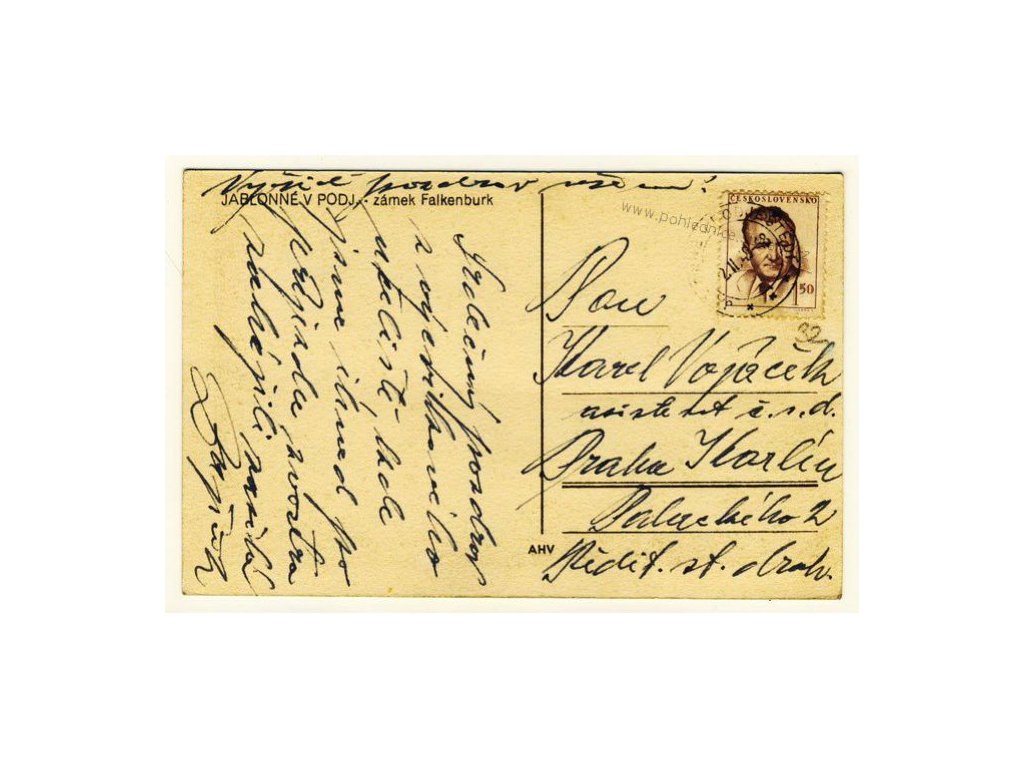 Vyřiď pozdrav všem!
JABLONNÉ V PODJ. - zámek Falkenburk
Srdečný pozdrav
z výcvikového
střediště, kde
jsme ihned po
příjezdu zvostra
zahájili
ČESKOSLOVENSKO
50
www.pohlednice
32
Pan
Karel Vojáček
asistent č.s.d.
Praha Karlín
Palackého 2
Ředit. st. drah.
AHV